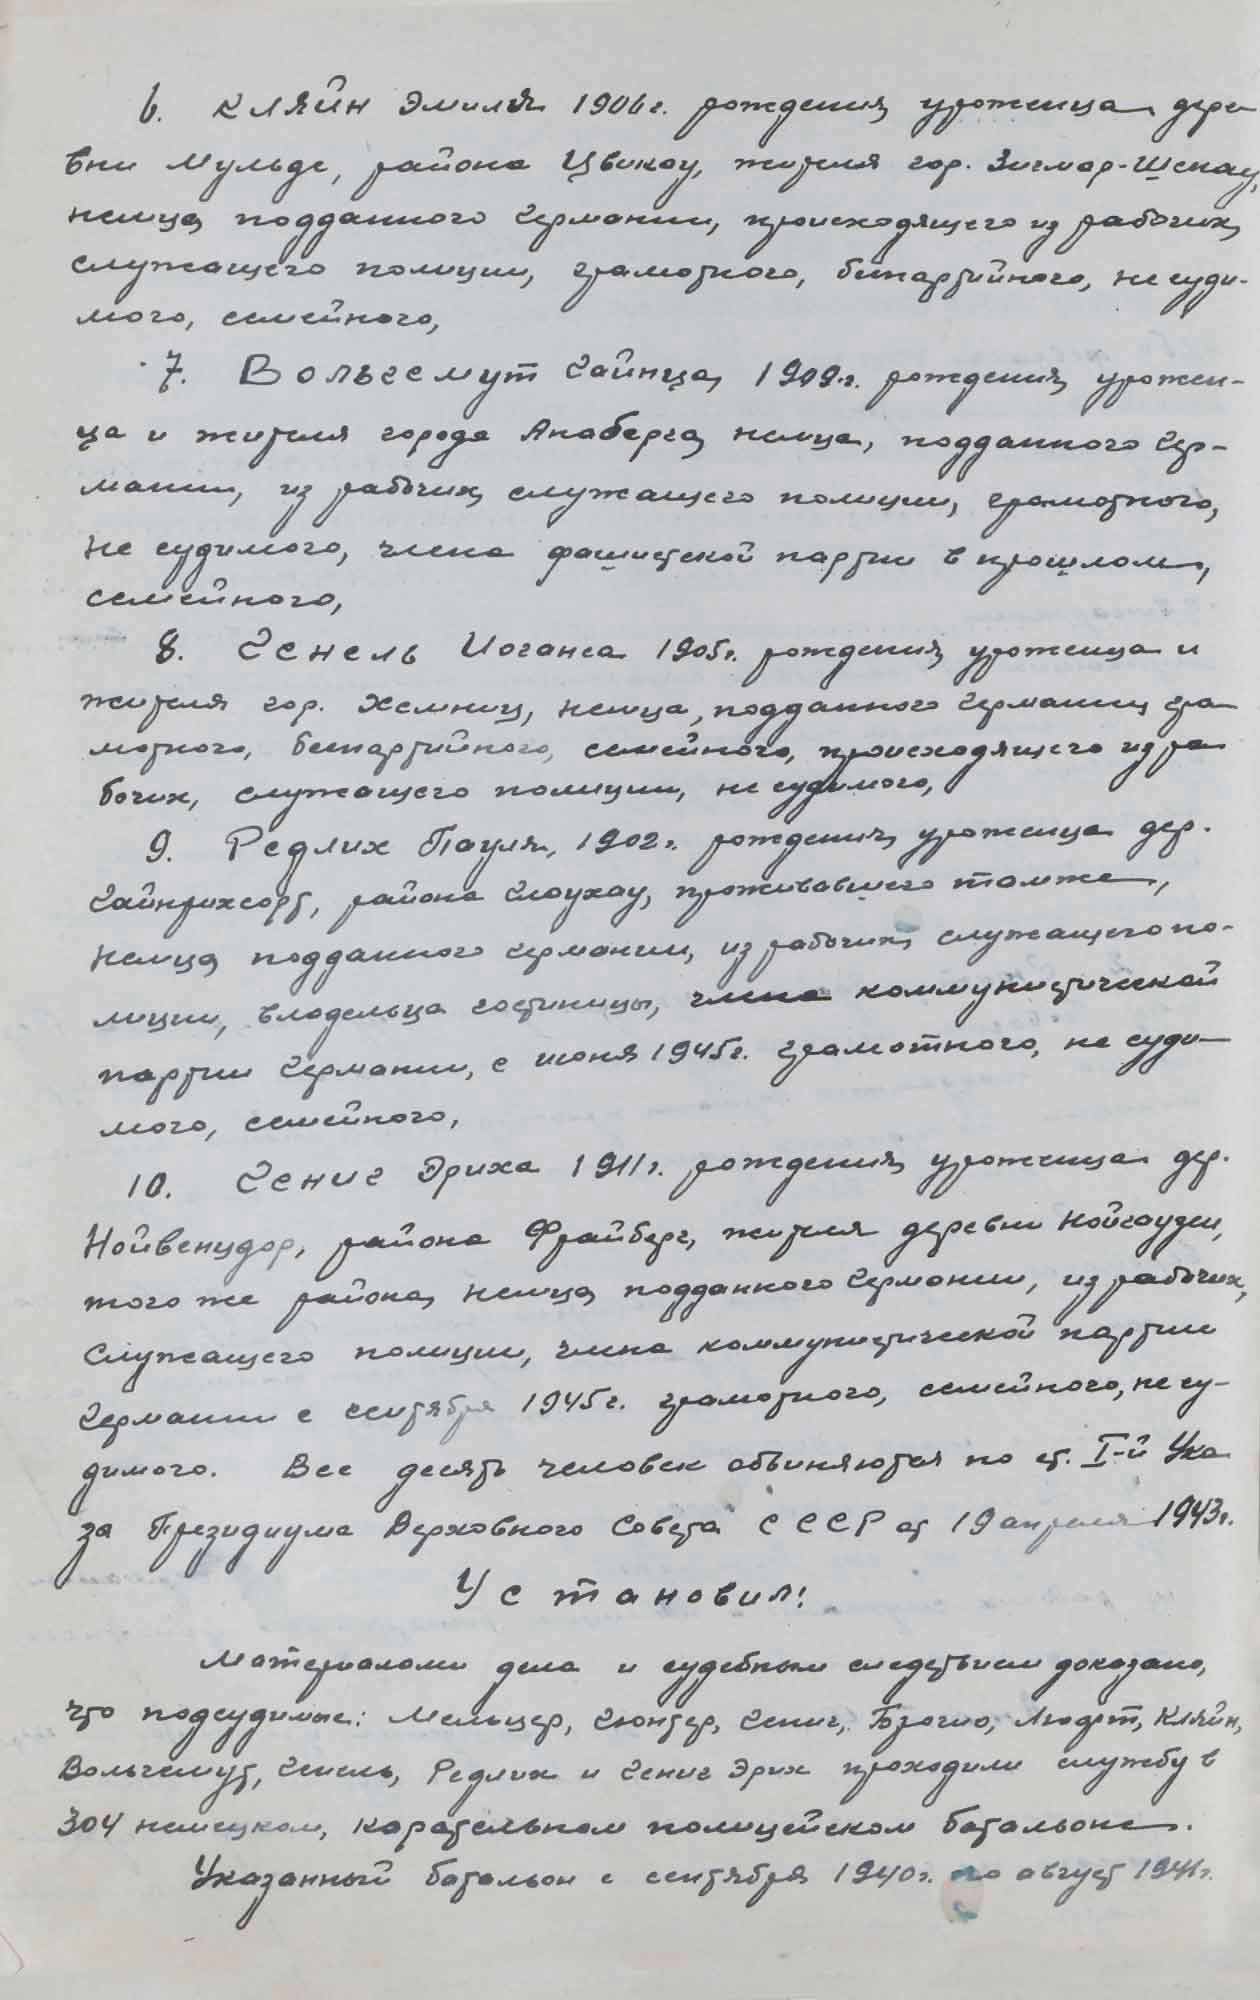 6. Кляйн Эмиля 1906 г. рождения, уроженца дере-
вни Мульде, района Цвикау, жителя гор. Зигмар-Шенау,
немца, подданного Германии, происходящего из рабочих,
служащего полиции, грамотного, беспартийного, не суди-
мого, семейного,
7. Вольгемут Гайнца, 1909 г. рождения, урожен-
ца и жителя города Анаберга, немца, подданного Гер-
мании, из рабочих, служащего полиции, грамотного,
не судимого, члена фашистской партии в прошлом,
семейного,
8. Генель Иоганса 1905 г. рождения, уроженца и
жителя гор. Хемниц, немца, подданного Германии, гра
мотного, беспартийного, семейного, происходящего из ра
бочих, служащего полиции, не судимого,
9. Редлих Пауля, 1902 г. рождения, уроженца дер.
Гайнрихсорт, района Глаухау, проживавшего тамже,
немца, подданного Германии, из рабочих, служащего по-
лиции, владельца гостиницы, члена коммунистической
партии Германии, с июня 1945 г. грамотного, не суди-
мого, семейного,
10. Гениг Эриха 1911 г. рождения, уроженца дер.
Нойвенцдор, района Фрайберг, жителя деревни Нойгаузен,
того же района, немца, подданного Германии, из рабочих,
служащего полиции, члена коммунистической партии
Германии с сентября 1945 г. грамотного, семейного, не су-
димого. Все десять человек обвиняются по ст. I-й Ука
за Президиума Верховного Совета СССР от 19 апреля 1943 г.
Установил:
Материалами дела и судебным следствием доказано,
что подсудимые: Мельцер, Гюнтер, Гениг, Люфт, Кляйн,
Вольгемут, Генель, Редлих и Гениг Эрих проходили службу в
304 немецком, карательном полицейском батальоне.
Указанный батальон с сентября 1940 г. по август 1941 г.